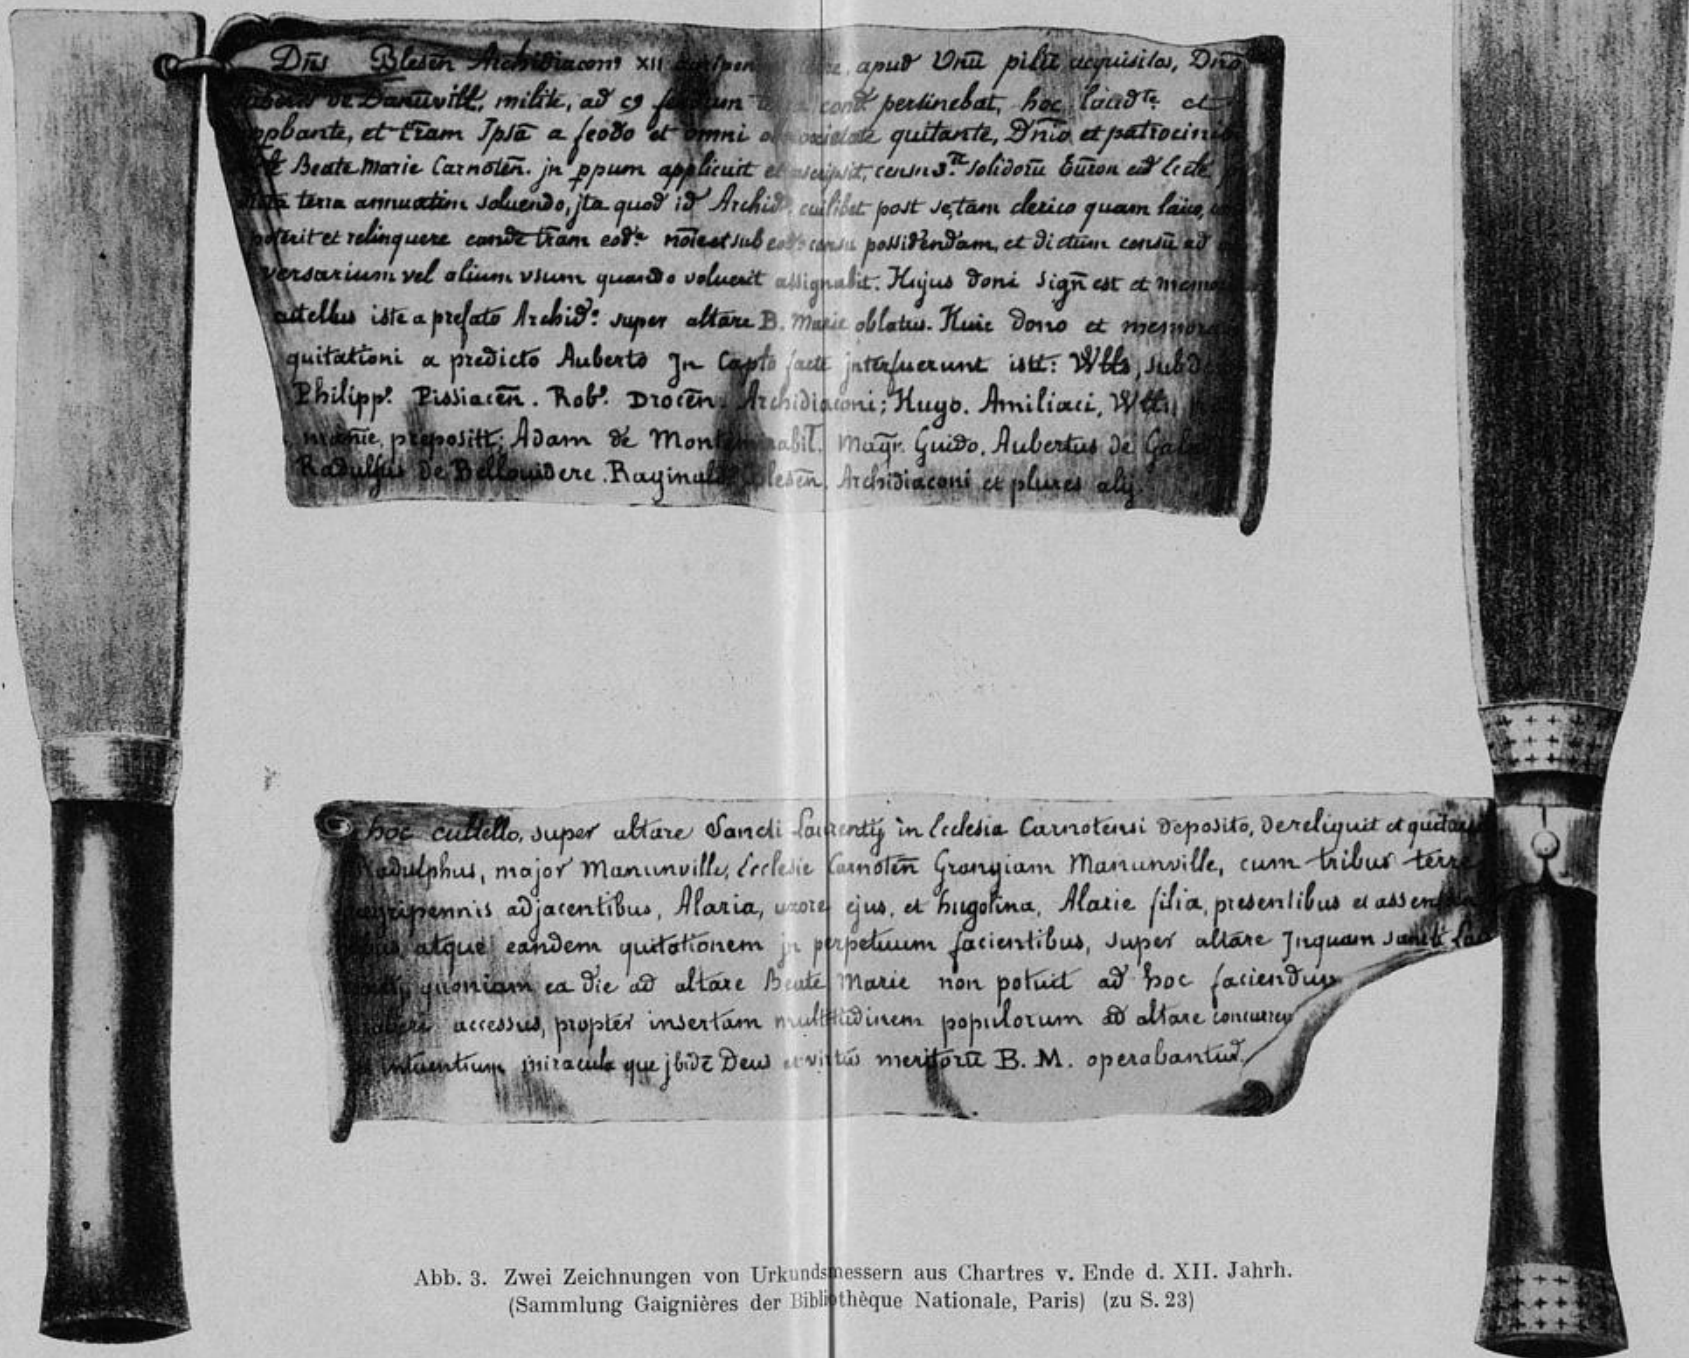 Dn̄s Blesen̄ Archidiacon⁹ XII apud Unū pilū acquisitas, Dn̄o
de Danūvill, milite, ad c9 pertinebat, hoc laudᵗᵉ et
ppbante, et t̄ram Ipsā a feodo et omni quitante, Dn̄io et patrocinio
Beate Marie Carnoten̄. jn ppum applicuit et ascripsit, censu 3.ᵐ solidorū
terra annuatim soluendo, jta quod id Archid.⁹ cuilibet post se, tam clerico quam laico,
poterit et relinquere eandē t̄ram eod.ᵉ nōie et sub eod.ᵉ censu possidendam, et dictum censū ad
versarium vel alium vsum quando voluerit assignabit. Hujus doni sign̄ est et
cutellus iste a prefato Archid.º super altare B. Marie oblatus. Huic dono et
quitationi a predicto Auberto Jn Capto facte jnterfuerunt isti: Wlls,
Philipp⁹. Pissiacen̄. Rob⁹. Drocen̄. Archidiaconi; Hugo. Amiliaci, Wlls
prepositi; Adam de Montemirabil. Magr. Guido. Aubertus de
Radulfus de Bellouidere. Raginald⁹ Blesen̄. Archidiaconi et plures alij.
hoc cultello, super altare Sancti Laurentij in Ecclesia Carnotensi deposito, dereliquit et
Radulphus, major Manunville, Ecclesie Carnoten̄ Grangiam Manunville, cum tribus terre
agripennis adjacentibus, Alaria, uxore ejus, et hugolina, Alarie filia, presentibus et
atque eandem quitationem jn perpetuum facientibus, super altare Jnquam Sancti
quoniam ea die ad altare Beate Marie non potuit ad hoc faciendum
accessus, propter insertam multitudinem populorum ad altare
intuentium miracula que jbidē Deus et virtus meritorū B. M. operabantur.
Abb. 3. Zwei Zeichnungen von Urkundsmessern aus Chartres v. Ende d. XII. Jahrh.
(Sammlung Gaignières der Bibliothèque Nationale, Paris) (zu S. 23)